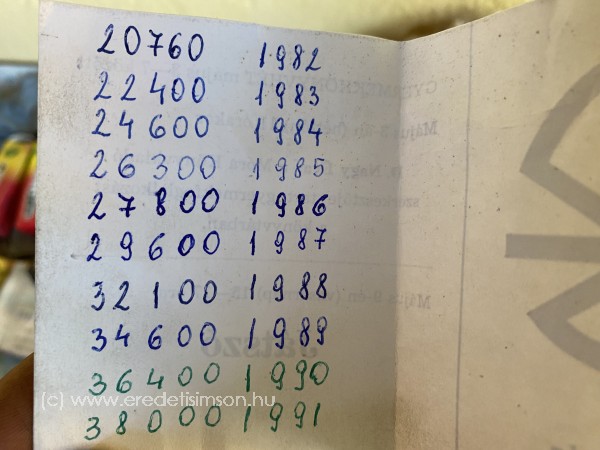 20760 1982
22400 1983
24600 1984
26300 1985
27800 1986
29600 1987
32100 1988
34600 1989
36400 1990
(c) www.eredetisimson.hu
38000 1991